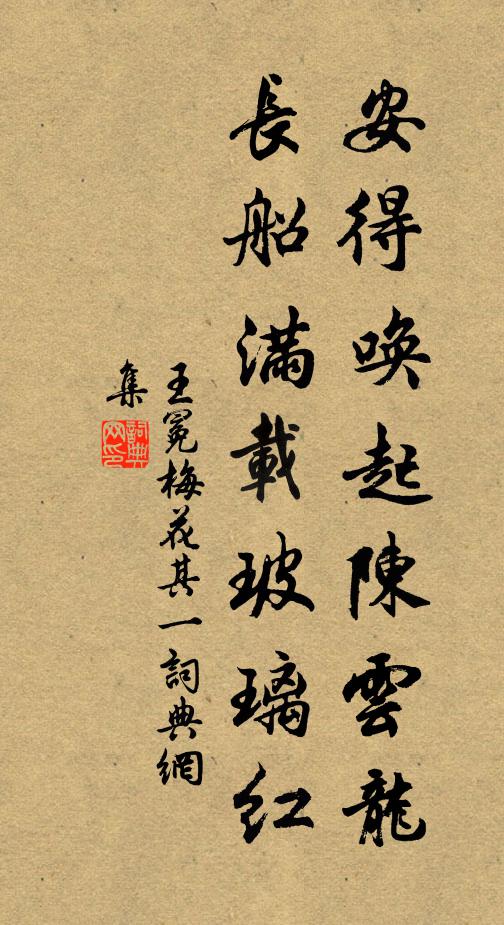 安得喚起陳雲龍
長船滿載玻璃紅
王冕梅花其一詞典網
集
詞典网印